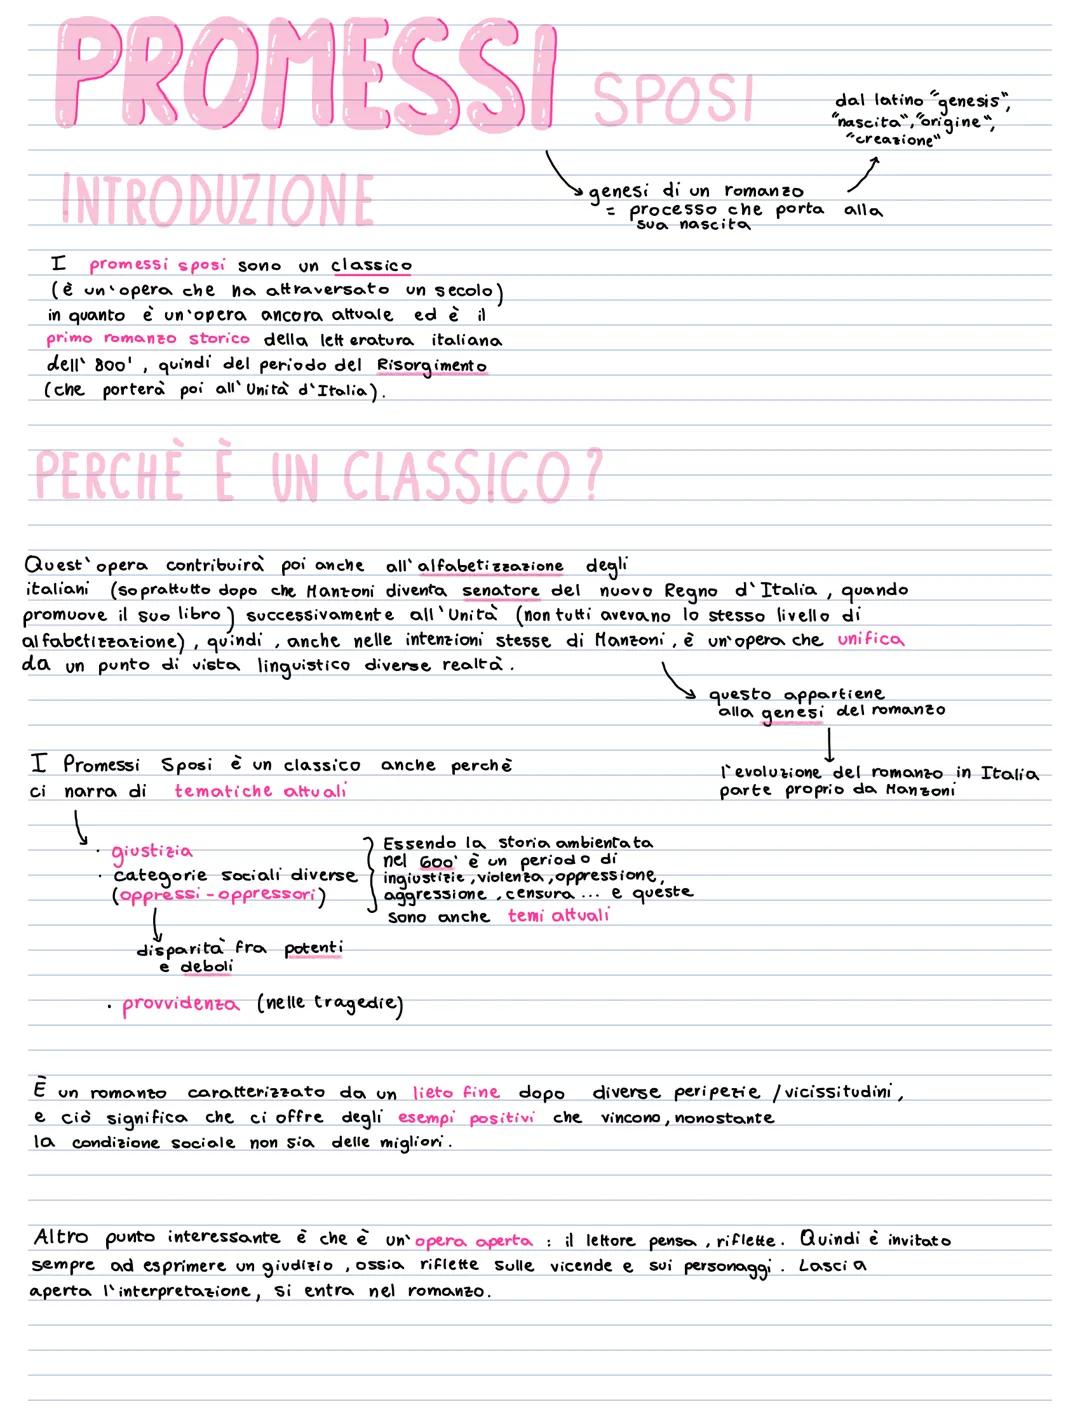 PROMESSI SPOSI
dal latino "genesis",
"nascita", "origine",
"creazione"
genesi di un romanzo
= processo che porta alla
sua nascita
INTRODUZIONE
I promessi sposi sono un classico
(è un'opera che ha attraversato un secolo)
in quanto è un'opera ancora attuale ed è il
primo romanzo storico della letteratura italiana
dell' 800', quindi del periodo del Risorgimento
(che porterà poi all'Unità d'Italia).
PERCHÈ È UN CLASSICO?
Quest'opera contribuirà poi anche all'alfabetizzazione degli
italiani (soprattutto dopo che Manzoni diventa senatore del nuovo Regno d'Italia, quando
promuove il suo libro) successivamente all'Unità (non tutti avevano lo stesso livello di
alfabetizzazione), quindi, anche nelle intenzioni stesse di Manzoni, è un'opera che unifica
da un punto di vista linguistico diverse realtà.
questo appartiene
alla genesi del romanzo
l'evoluzione del romanzo in Italia
parte proprio da Manzoni
I Promessi Sposi è un classico anche perchè
ci narra di tematiche attuali
· giustizia
· categorie sociali diverse
(oppressi - oppressori)
Essendo la storia ambientata
nel 600' è un periodo di
ingiustizie, violenza, oppressione,
aggressione, censura... e queste
sono anche temi attuali
disparità fra potenti
e deboli
· provvidenza (nelle tragedie)
È un romanzo caratterizzato da un lieto fine dopo diverse peripezie / vicissitudini,
e ciò significa che ci offre degli esempi positivi che vincono, nonostante
la condizione sociale non sia delle migliori.
Altro punto interessante è che è un'opera aperta : il lettore pensa, riflette. Quindi è invitato
sempre ad esprimere un giudizio, ossia riflette sulle vicende e sui personaggi. Lascia
aperta l'interpretazione, si entra nel romanzo.